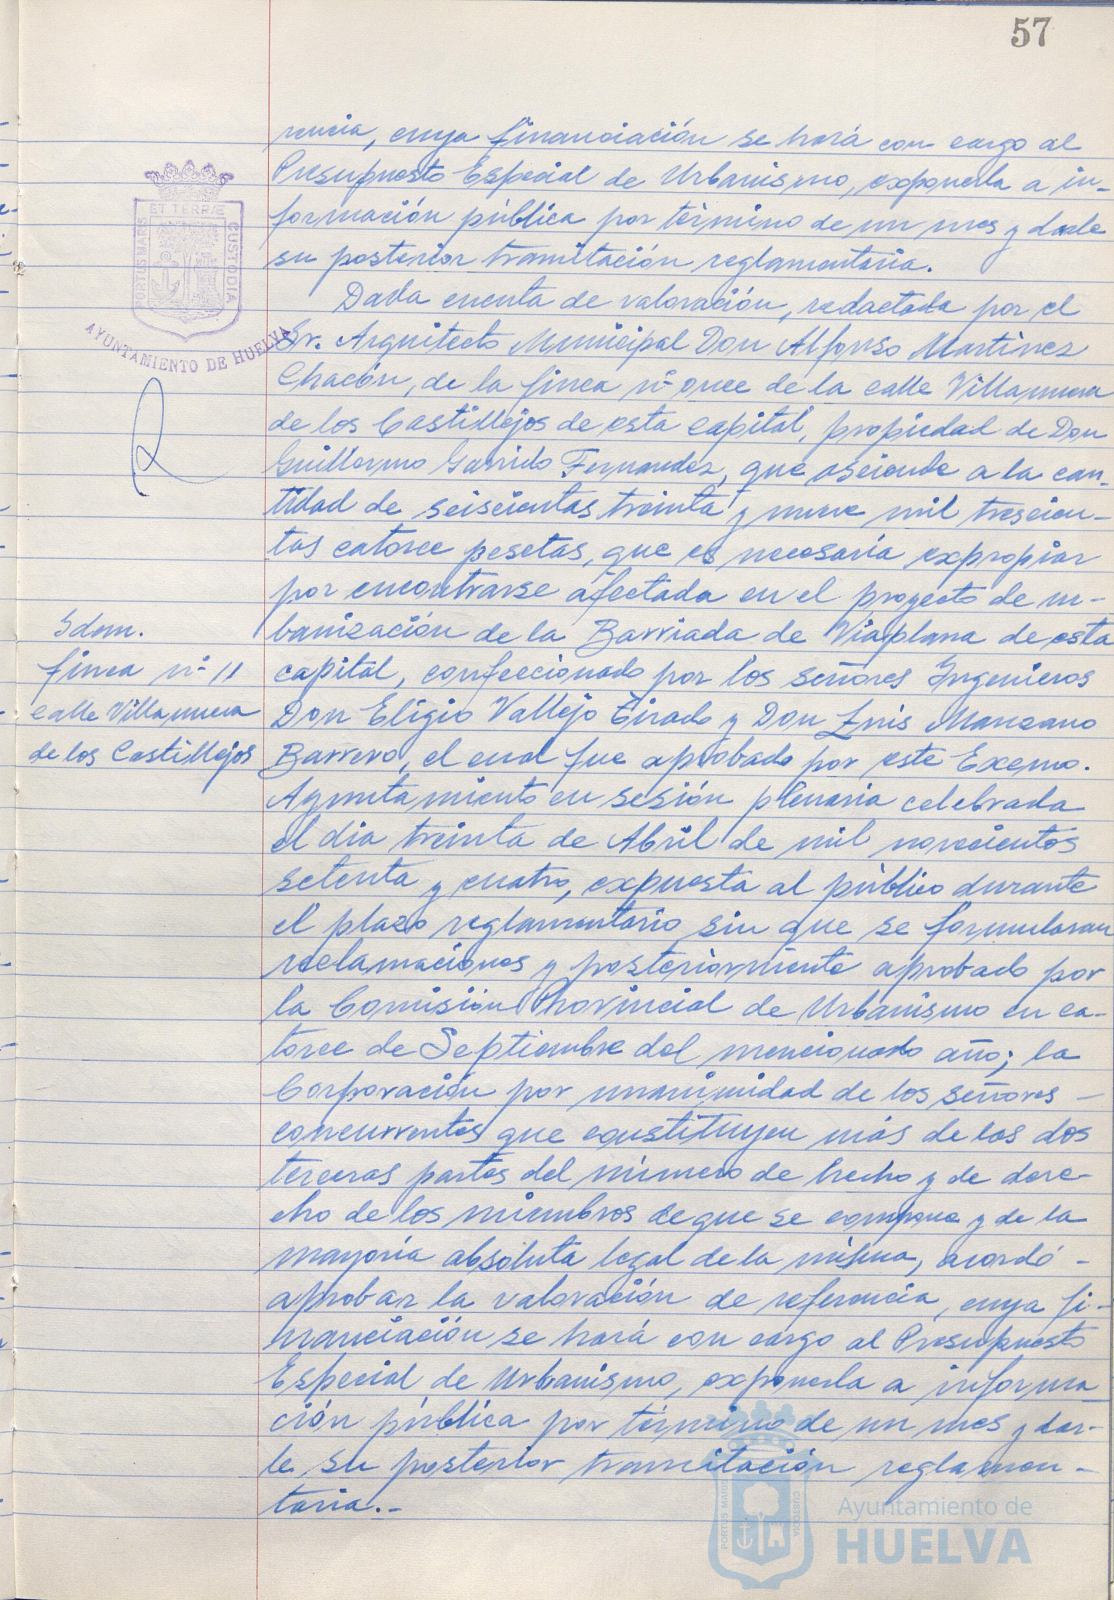 57
rencia, cuya financiación se hará con cargo al
Presupuesto Especial de Urbanismo, exponerla a in-
formación pública por término de un mes y darle
su posterior tramitación reglamentaria.
Dada cuenta de valoración, redactada por el
Sr. Arquitecto Municipal Don Alfonso Martinez
Chacón, de la finca nº once de la calle Villanueva
de los Castillejos de esta capital, propiedad de Don
Guillermo Garrido Fernandez, que asciende a la can-
tidad de seiscientas treinta y nueve mil trescien-
tas catorce pesetas, que es necesaria expropiar
por encontrarse afectada en el proyecto de ur-
banización de la Barriada de Viaplana de esta
capital, confeccionado por los señores Ingenieros
Don Eligio Vallejo Tirado y Don Luis Manzano
Barrero, el cual fue aprobado por este Excmo.
Ayuntamiento en sesión plenaria celebrada
el dia treinta de Abril de mil novecientos
setenta y cuatro, expuesta al público durante
el plazo reglamentario sin que se formularan
reclamaciones y posteriormente aprobado por
la Comisión Provincial de Urbanismo en ca-
torce de Septiembre del mencionado año; la
Corporación por unanimidad de los señores -
concurrentes que constituyen más de las dos
terceras partes del número de hecho y de dere-
cho de los miembros de que se compone y de la
mayoría absoluta legal de la misma, acordó -
aprobar la valoración de referencia, cuya fi-
nanciación se hará con cargo al Presupuesto
Especial de Urbanismo, exponerla a informa
ción pública por término de un mes y dar-
le su posterior tramitación reglamen-
taria.-
Idem.
finca nº 11
calle Villanueva
de los Castillejos
PORTUS MARIS
ET TERRÆ
CUSTODIA
AYUNTAMIENTO DE HUELVA
PORTUS MARIS
CUSTODIA
Ayuntamiento de
HUELVA